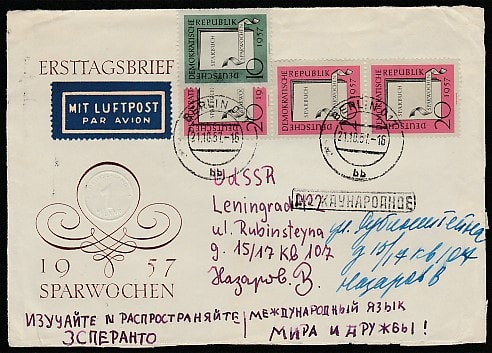 ERSTTAGSBRIEF
MIT LUFTPOST
PAR AVION
DEUTSCHE
DEMOKRATISCHE
REPUBLIK
SPARBUCH
SPARWOCHEN
10
1957
DEUTSCHE
20
DEUTSCHE
DEMOKRATISCHE
REPUBLIK
SPARBUCH
20
1957
DEUTSCHE
DEMOKRATISCHE
REPUBLIK
SPARBUCH
20
1957
BERLIN
21.10.57.-16
bb
BERLIN
21.10.57.-16
bb
UdSSR
Leningrad
МЕЖДУНАРОДНОЕ
ul. Rubinsteyna
g. 15/17 кв 107
Назаров. В.
ул. Рубинштейна
д 15/17 кв 107
Назаров В
1957
SPARWOCHEN
ИЗУЧАЙТЕ И РАСПРОСТРАНЯЙТЕ
ЭСПЕРАНТО
МЕЖДУНАРОДНЫЙ ЯЗЫК
МИРА И ДРУЖБЫ!